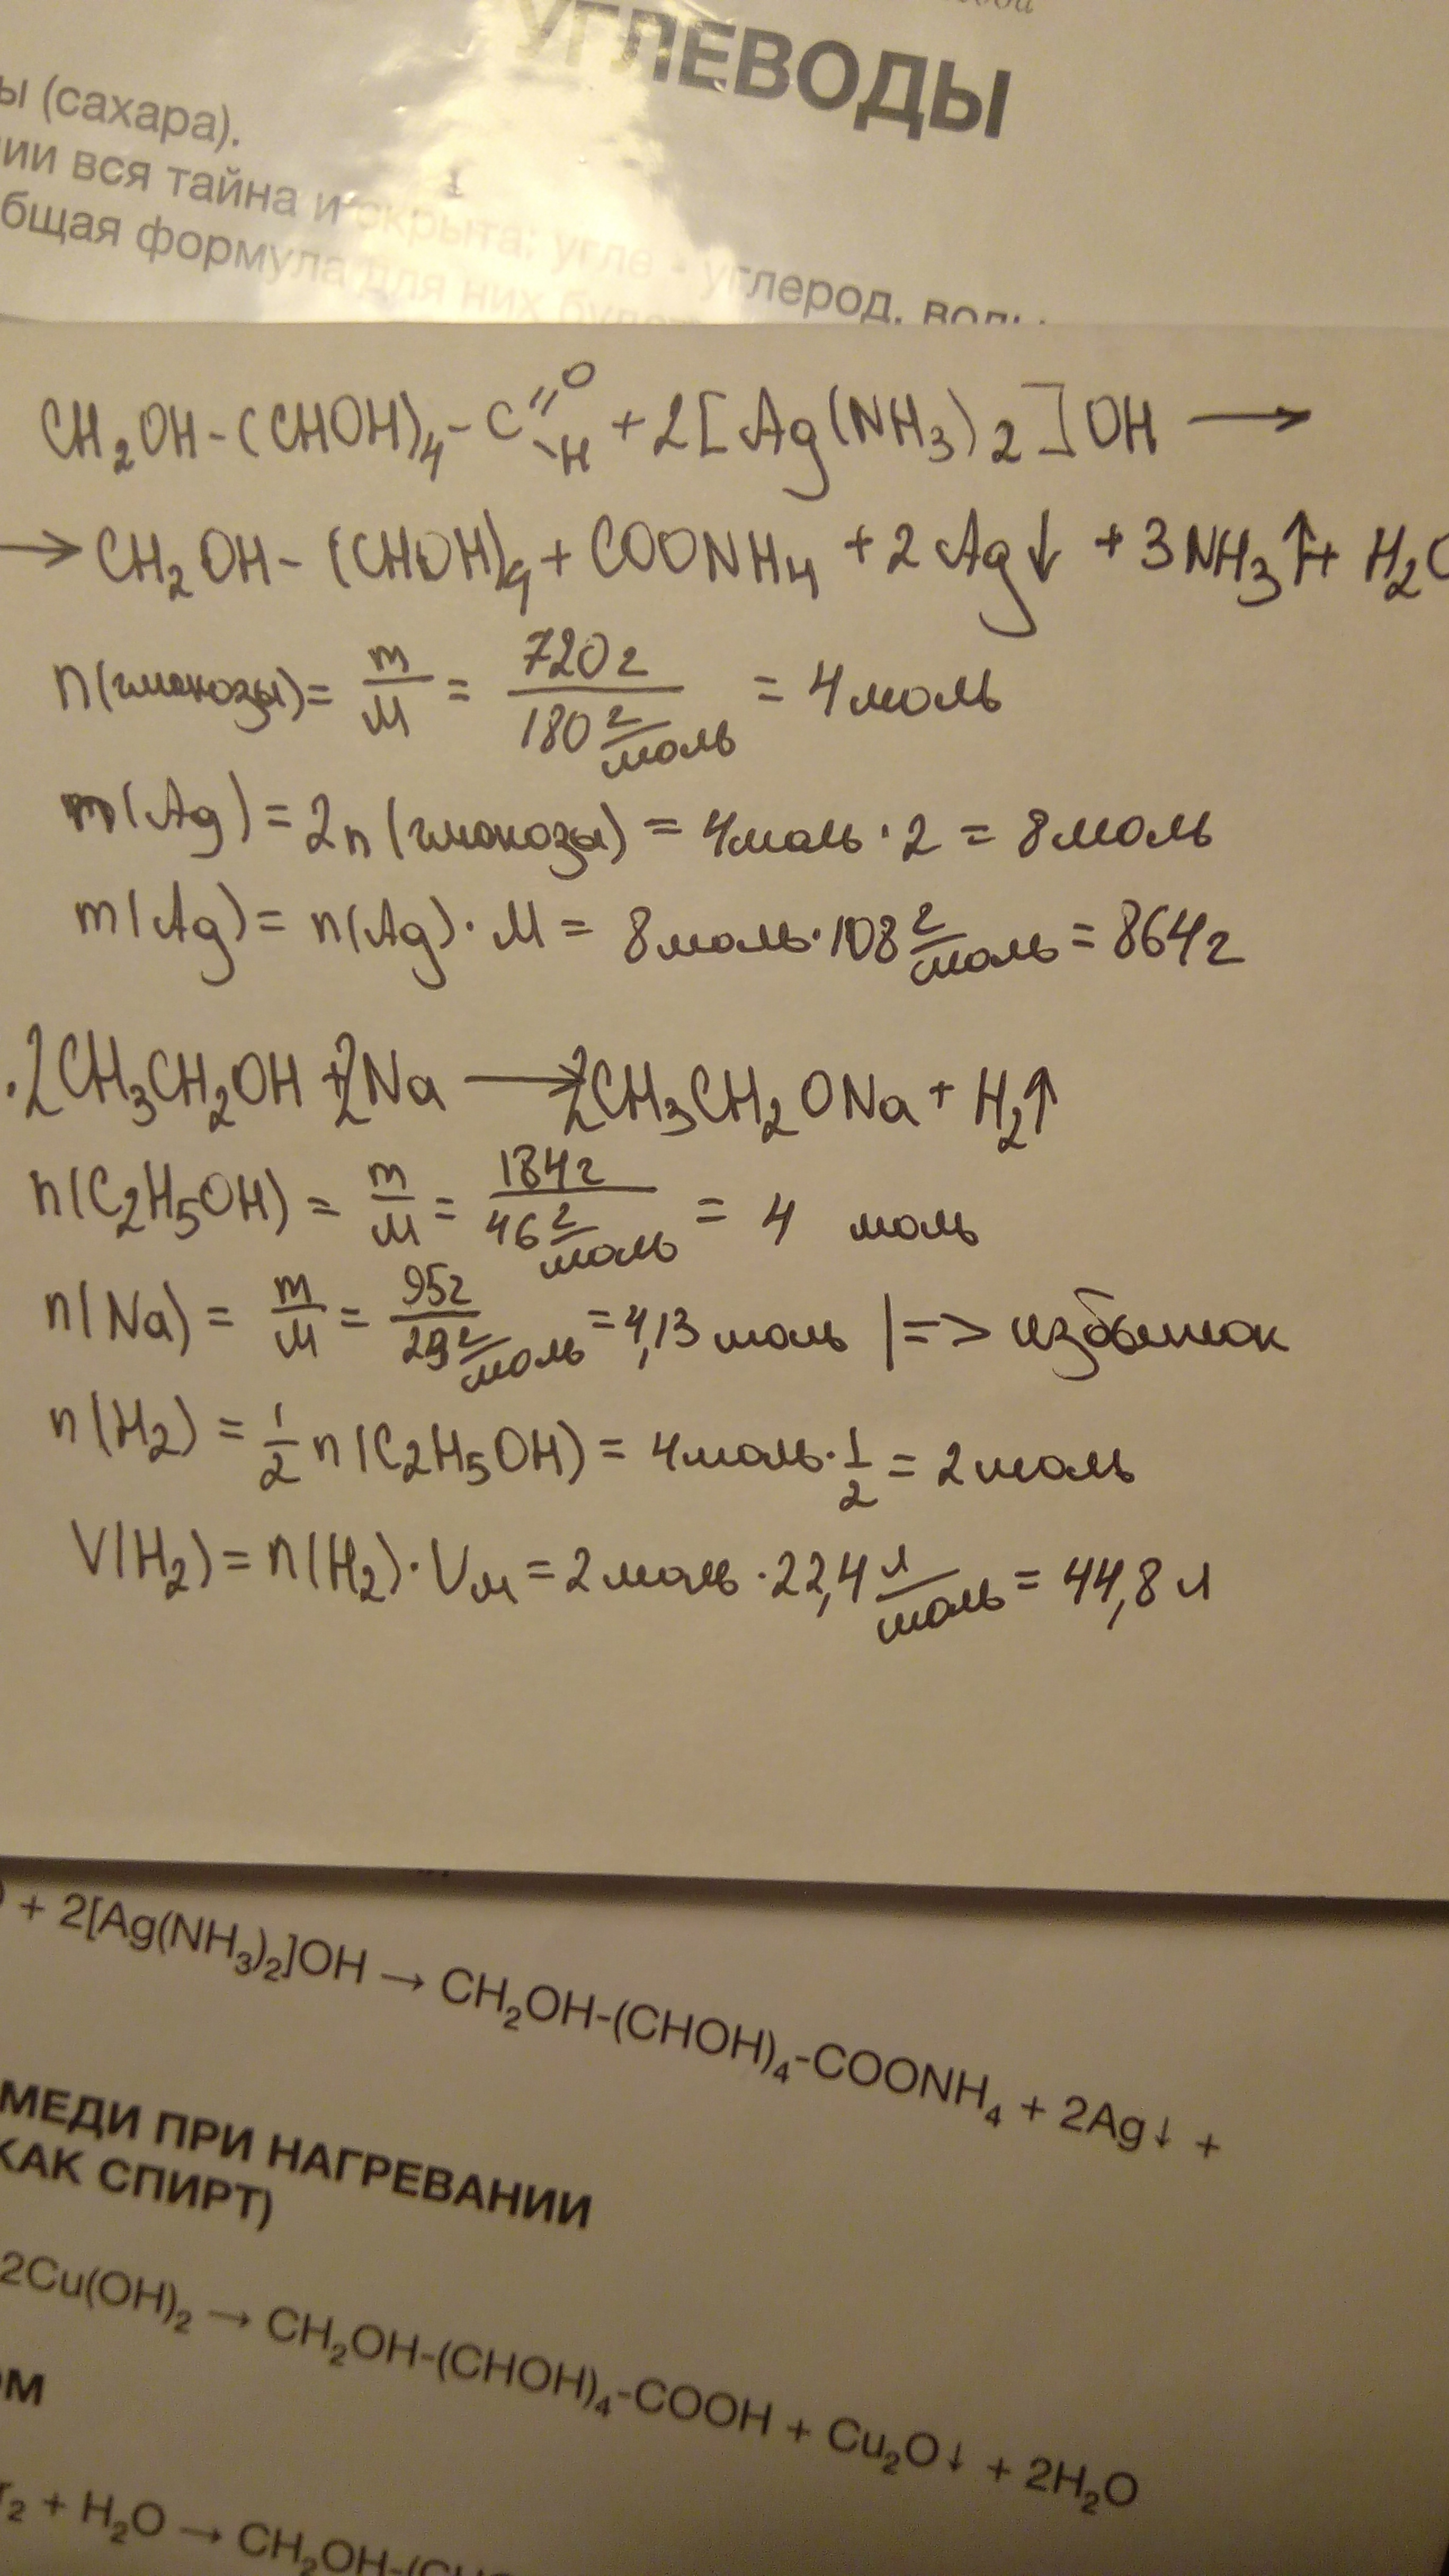 УГЛЕВОДЫ
ы (сахара).
ии вся тайна и скрыта: угле - углерод, воды
бщая формула для них будет
CH₂OH-(CHOH)₄-C=O -H +2[Ag(NH₃)₂]OH →
→ CH₂OH-(CHOH)₄+COONH₄ +2Ag↓ +3NH₃↑+ H₂O
n(глюкозы)= m/M = 720г/180 г/моль = 4моль
m(Ag)=2n(глюкозы)=4моль·2=8моль
m(Ag)=n(Ag)·M=8моль·108 г/моль=864г
2CH₃CH₂OH+2Na→2CH₃CH₂ONa+H₂↑
n(C₂H₅OH)= m/M = 184г/46 г/моль = 4 моль
n(Na)= m/M = 95г/23 г/моль =4,13моль |=> избыток
n(H₂)= 1/2 n(C₂H₅OH)=4моль·1/2=2моль
V(H₂)=n(H₂)·Vм=2моль·22,4 л/моль=44,8л
+ 2[Ag(NH₃)₂]OH → CH₂OH-(CHOH)₄-COONH₄ + 2Ag↓ +
МЕДИ ПРИ НАГРЕВАНИИ
КАК СПИРТ)
2Cu(OH)₂ → CH₂OH-(CHOH)₄-COOH + Cu₂O↓ + 2H₂O
ОМ
r₂ + H₂O → CH₂OH-(CHO